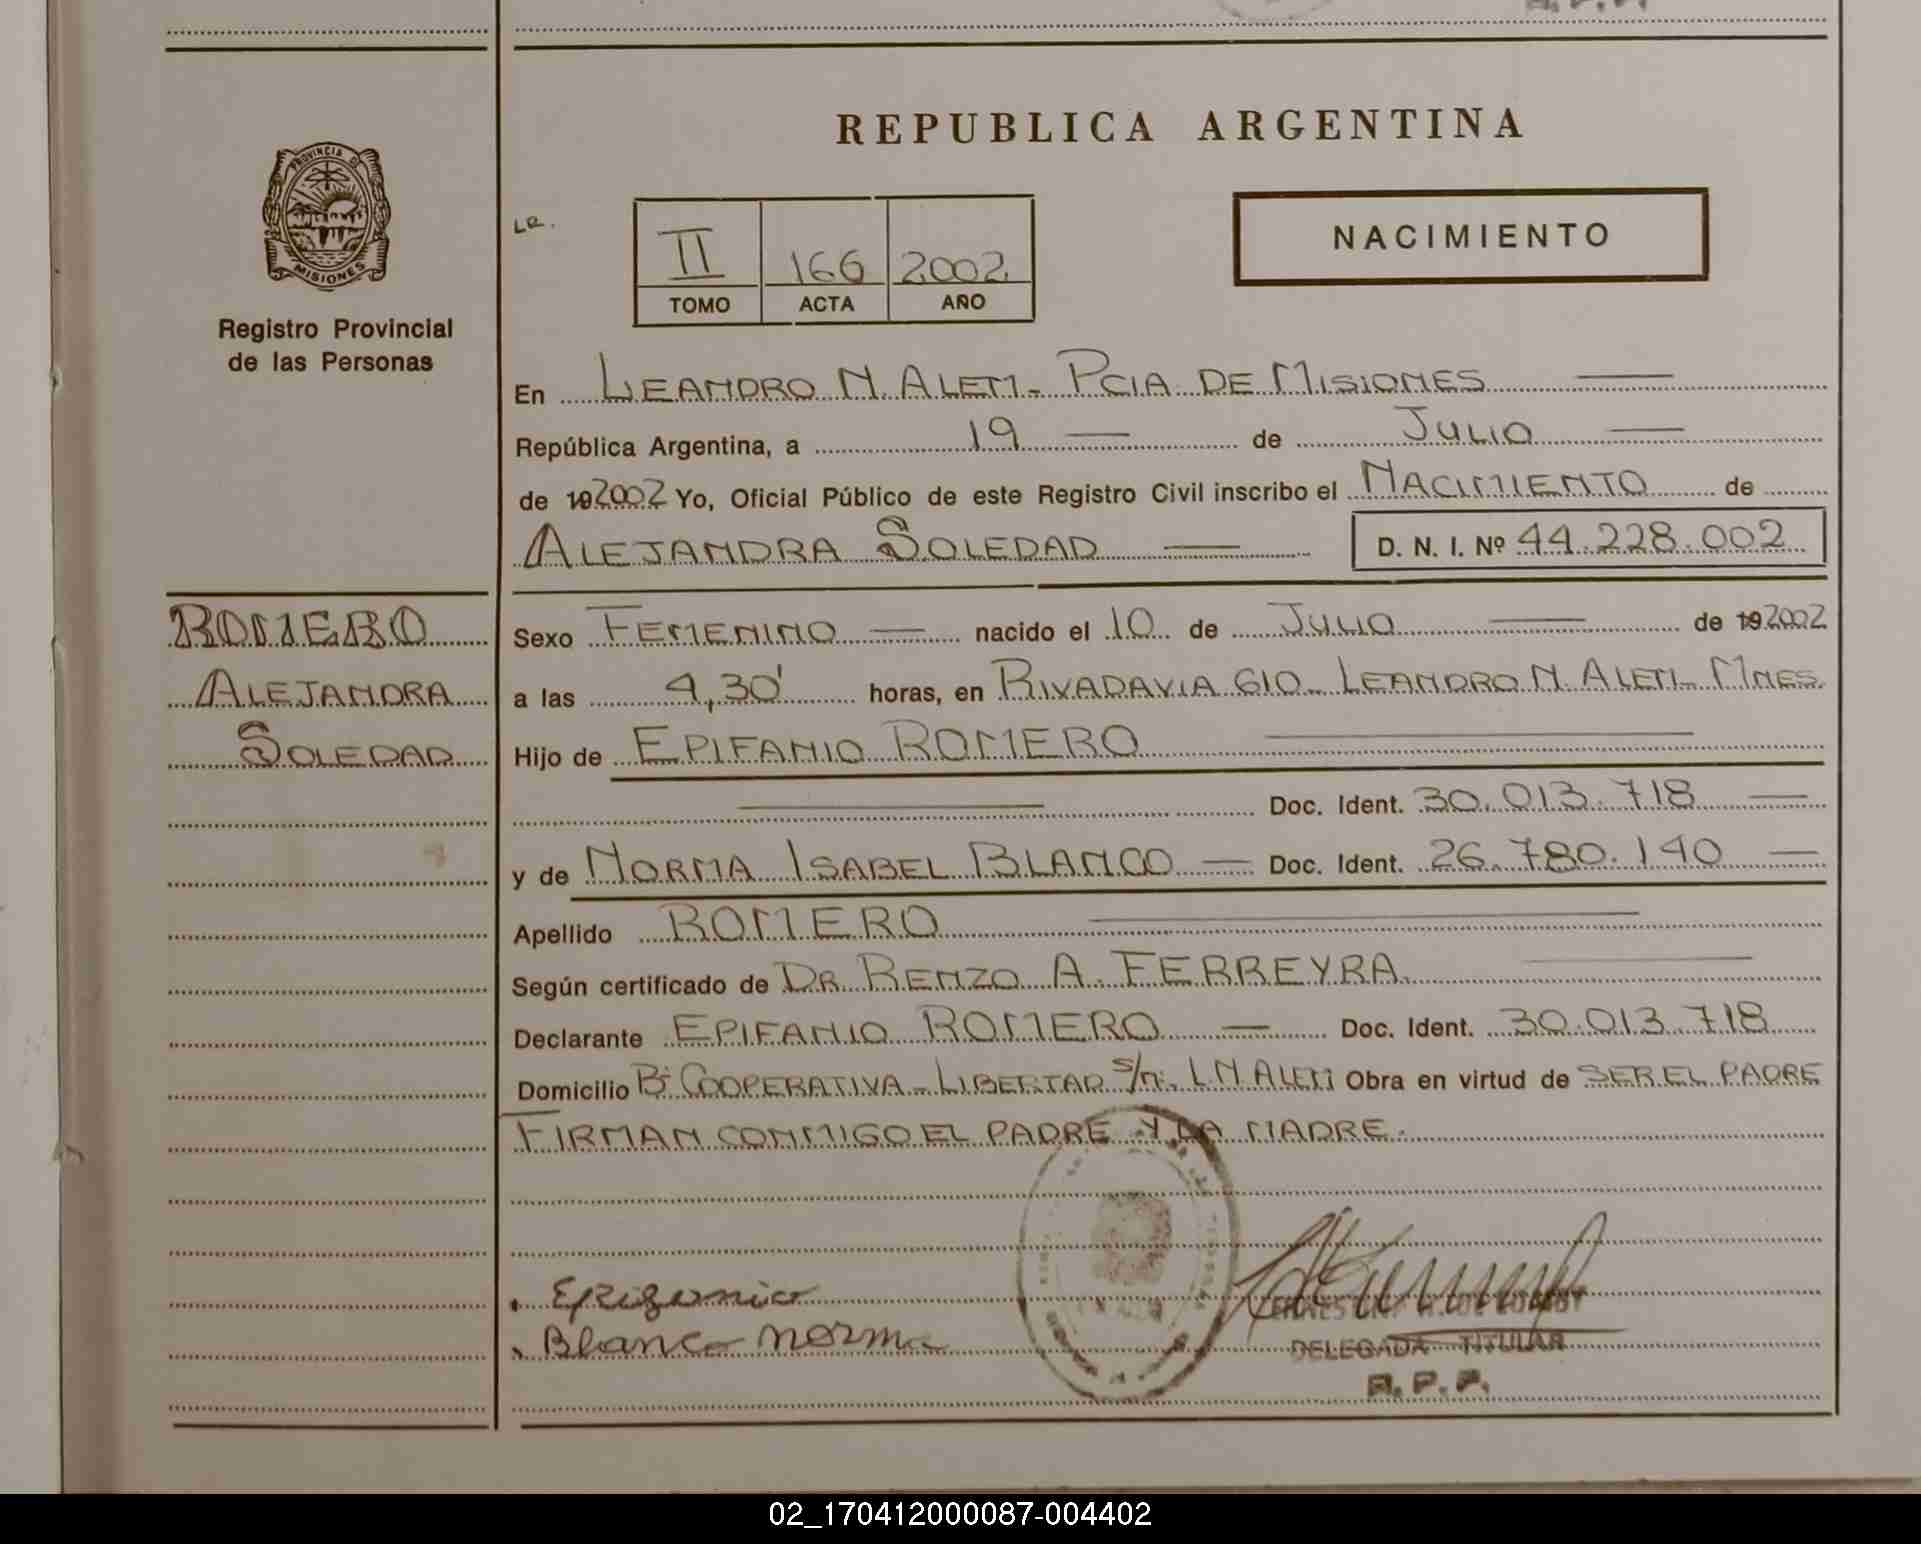 REPUBLICA ARGENTINA
PROVINCIA DE
MISIONES
Registro Provincial
de las Personas
LR.
II 166 2002
TOMO ACTA AÑO
NACIMIENTO
En LEANDRO N. ALEM - PCIA DE MISIONES
República Argentina, a 19 de JULIO
de 192002 Yo, Oficial Público de este Registro Civil inscribo el NACIMIENTO de
ALEJANDRA SOLEDAD D. N. I. Nº 44.228.002
ROMERO
ALEJANDRA
SOLEDAD
Sexo FEMENINO nacido el 10 de JULIO de 192002
a las 4,30' horas, en RIVADAVIA 610 - LEANDRO N. ALEM - MNES.
Hijo de EPIFANIO ROMERO
Doc. Ident. 30.013.718
y de NORMA ISABEL BLANCO Doc. Ident. 26.780.140
Apellido ROMERO
Según certificado de DR. RENZO A. FERREYRA.
Declarante EPIFANIO ROMERO Doc. Ident. 30.013.718
Domicilio Bº COOPERATIVA - LIBERTAD s/n. L.N. ALEM Obra en virtud de SER EL PADRE
FIRMAN CONMIGO EL PADRE Y LA MADRE.
Blanco Norma
DELEGADA TITULAR
R.P.P.
02_170412000087-004402